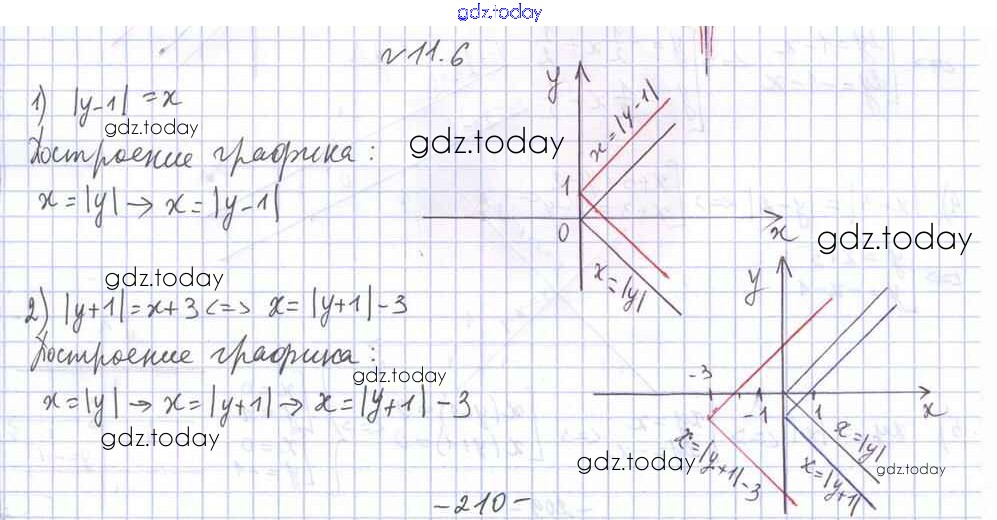 gdz.today
№11.6
1) |y-1| = x
gdz.today
Построение графика:
x = |y| → x = |y-1|
y
x = |y-1|
gdz.today
1
0
x
x = |y|
gdz.today
gdz.today
2) |y+1| = x+3 <=> x = |y+1| - 3
Построение графика:
gdz.today
x = |y| → x = |y+1| → x = |y+1| - 3
gdz.today
y
-3
-1
1
x
x = |y|
x = |y+1|
x = |y+1| - 3
gdz.today
gdz.today
-210-